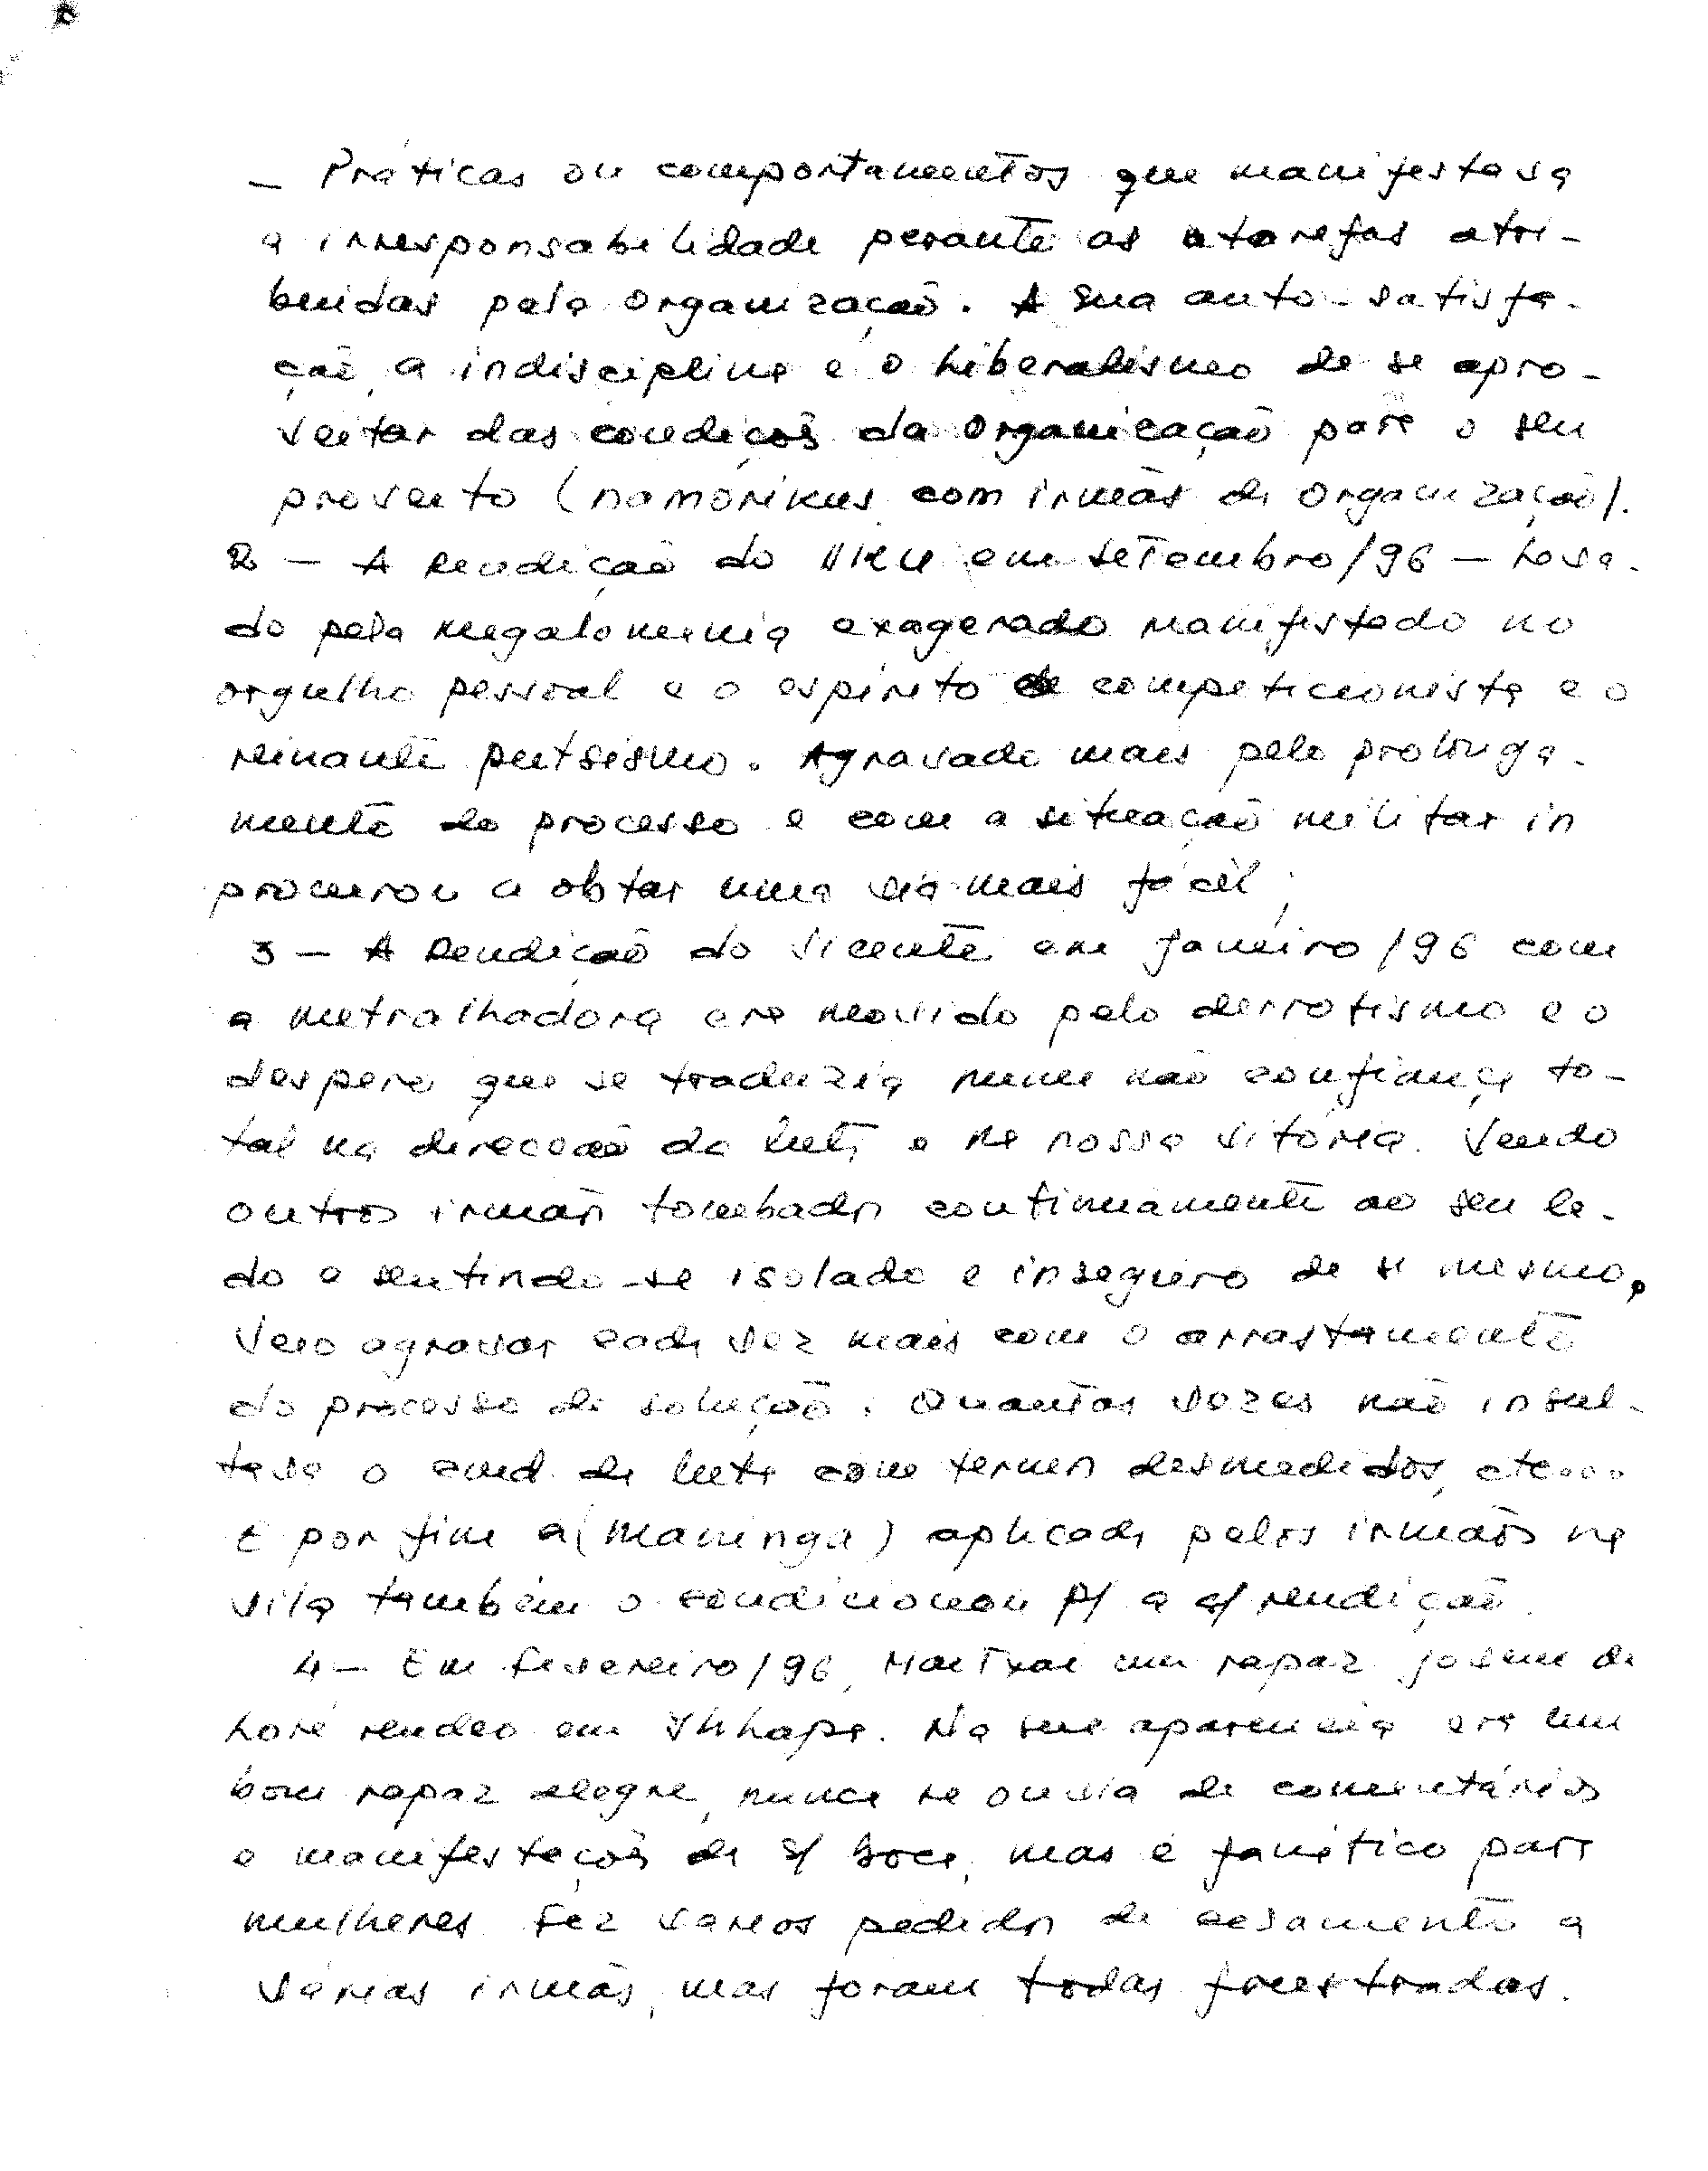 – Práticas ou comportamentos que manifestava
a irresponsabilidade perante as atarefas atri-
buidas pela organização. A sua auto-satisfa-
ção, a indisciplina e o liberalismo de se apro-
veitar das condições da Organização para o seu
proveito (namorikus com irmãs da Organização).
2 – A Rendição do em Setembro/96 – Leva-
do pela megalomania exagerado manifestado no
orgulho pessoal e o espírito de competicionista e o
reinante putsismo. Agravado mais pelo prolonga-
mento do processo e com a situação militar in
procurou a obtar uma via mais fácil,
3 – A Rendição do Vicente em Janeiro/96 com
a metralhadora era movido pelo derrotismo e o
despero que se traduzia numa não confiança to-
tal na direcção da luta e na nossa vitória. Vendo
outros irmãos tombados continuamente ao seu la-
do e sentindo-se isolado e inseguro de si mesmo,
veio agravar cada vez mais com o arrastamento
do processo de solução. Quantas vezes não insul-
tava o cmd. da luta com termos desmedidos, etc...
E por fim a (Maninga) aplicada pelos irmãos na
vila também o condicionou p/ a s/ rendição.
4 – Em fevereiro/96, um rapaz jovem de
Loré rendeo em . Na sua aparencia era um
bom rapaz alegre, nunca se ouvia de comentários
e manifestações de s/ boca, mas é fanático para
mulheres fez varios pedidos de casamento a
várias irmãs, mas foram todas frustradas.